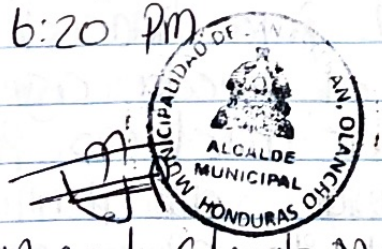 6:20 PM
MUNICIPALIDAD DE
AN, OLANCHO
ALCALDE
MUNICIPAL
HONDURAS